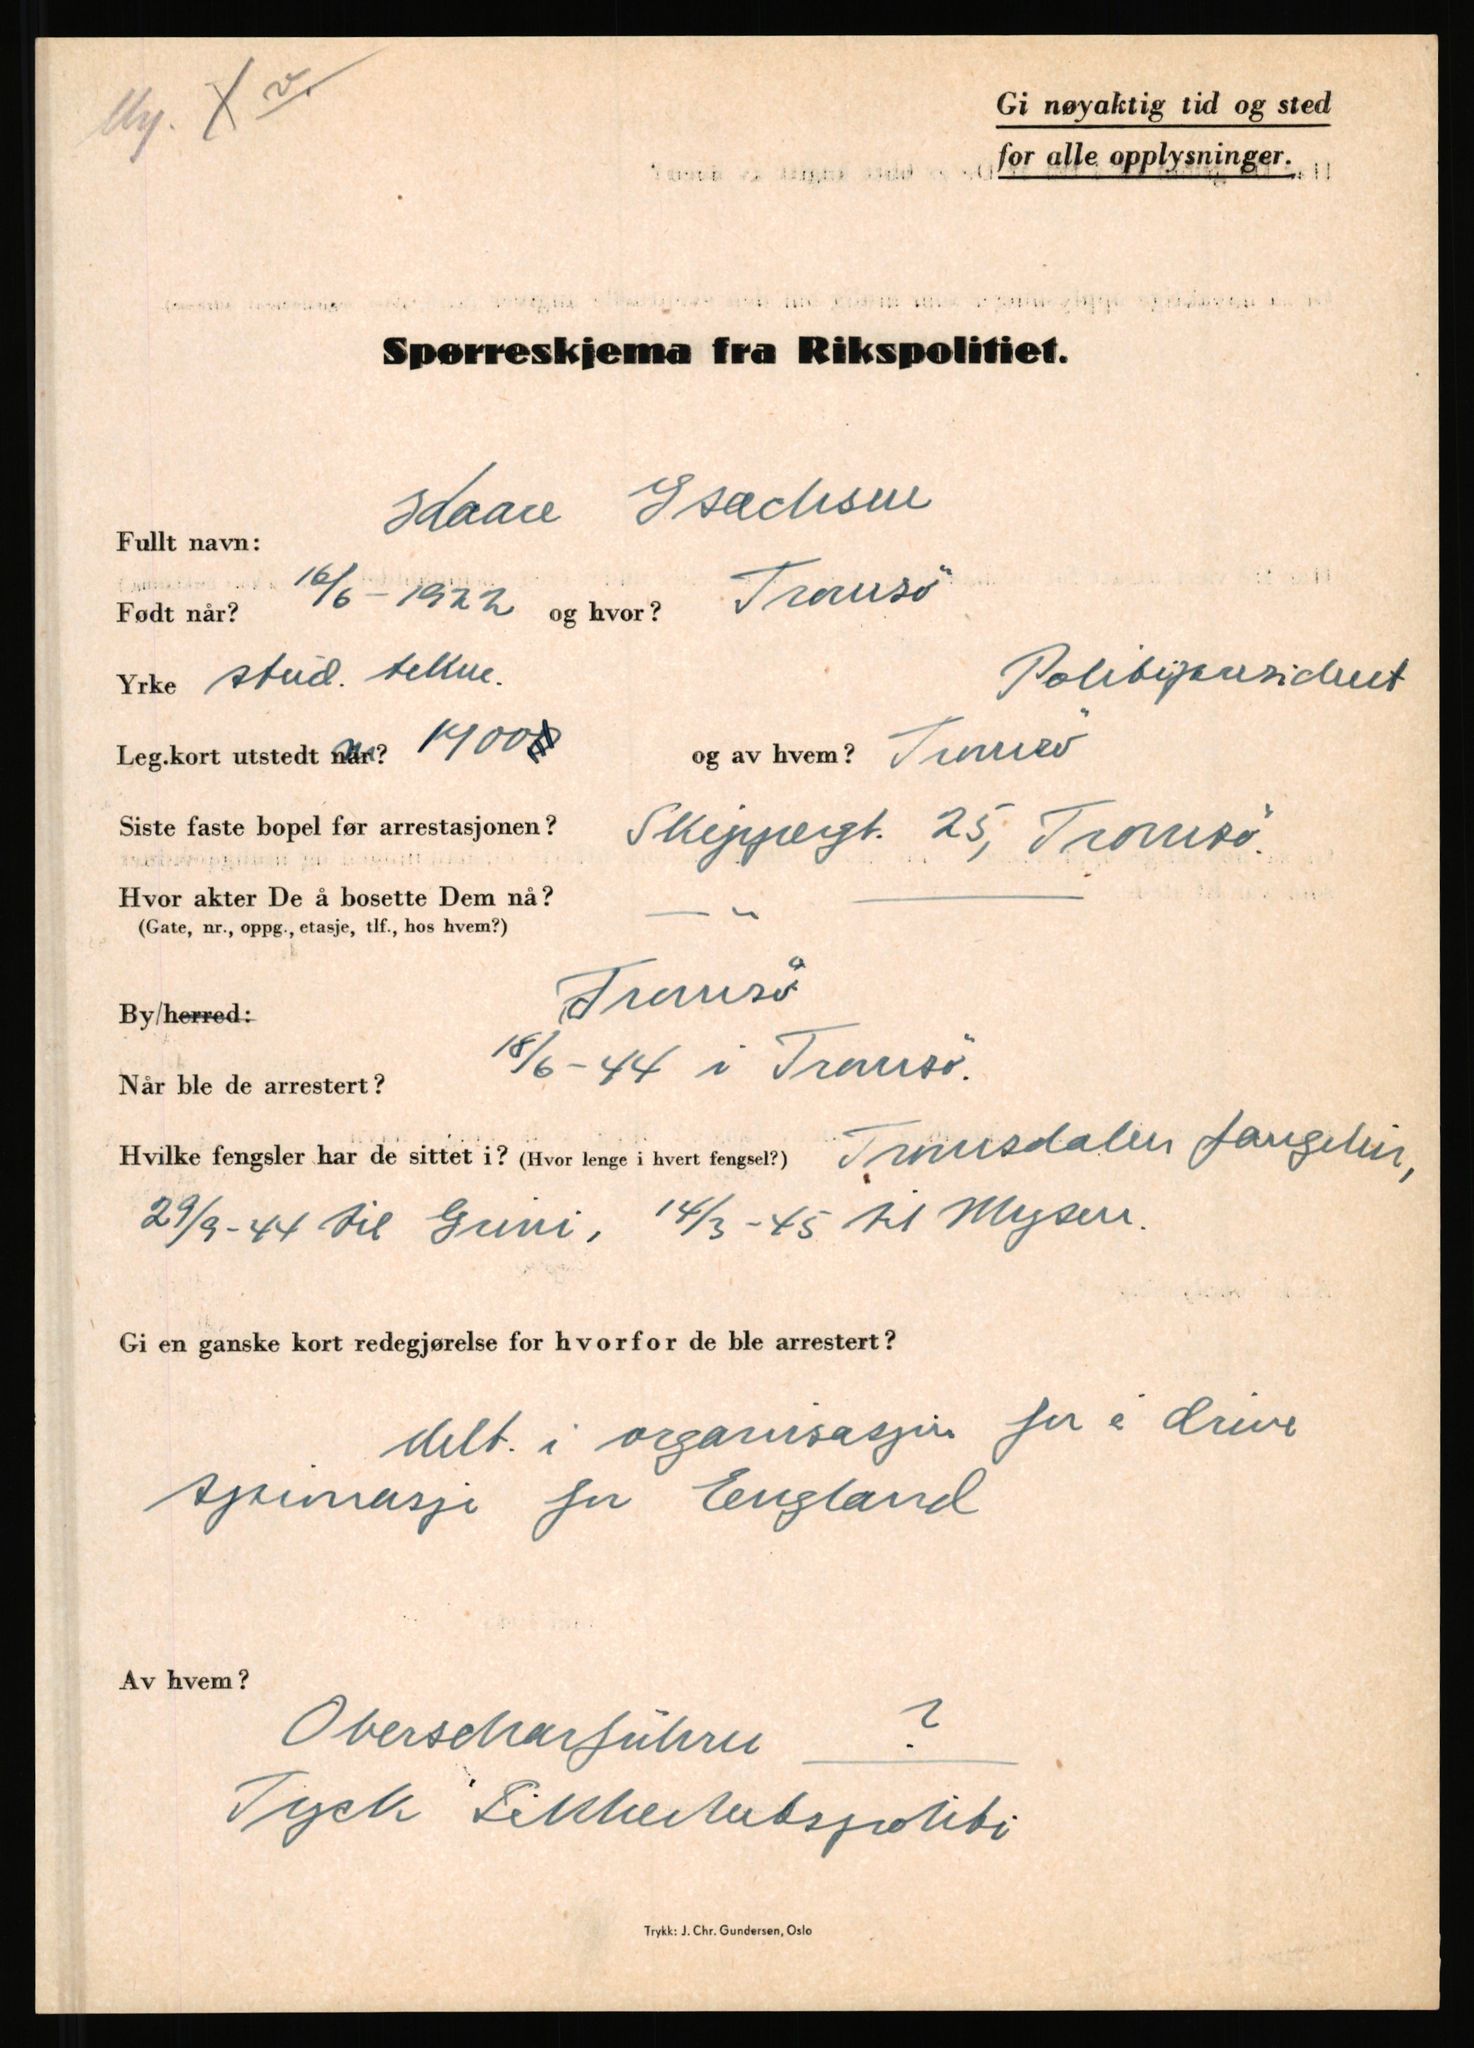 My. X v.
Gi nøyaktig tid og sted
for alle opplysninger.
Spørreskjema fra Rikspolitiet.
Fullt navn: Kaare Isachsen
Født når? 16/6 - 1922 og hvor? Tromsö
Yrke stud. tekn. Politipresident
Leg.kort utstedt når? 1400 og av hvem? Tromsö
Siste faste bopel før arrestasjonen? Skippergt. 25, Tromsö.
Hvor akter De å bosette Dem nå? — " —
(Gate, nr., oppg., etasje, tlf., hos hvem?)
By/herred: Tromsö
Når ble de arrestert? 18/6 - 44 i Tromsö.
Hvilke fengsler har de sittet i? (Hvor lenge i hvert fengsel?) Tromsdalen fangeleir,
29/9 - 44 til Grini, 14/3 - 45 til Mysen.
Gi en ganske kort redegjørelse for hvorfor de ble arrestert?
delt. i organisasjon for å drive
spionasje for England
Av hvem?
Oberscharführer ?
Tysk Sikkerhetspoliti
Trykk: J. Chr. Gundersen, Oslo